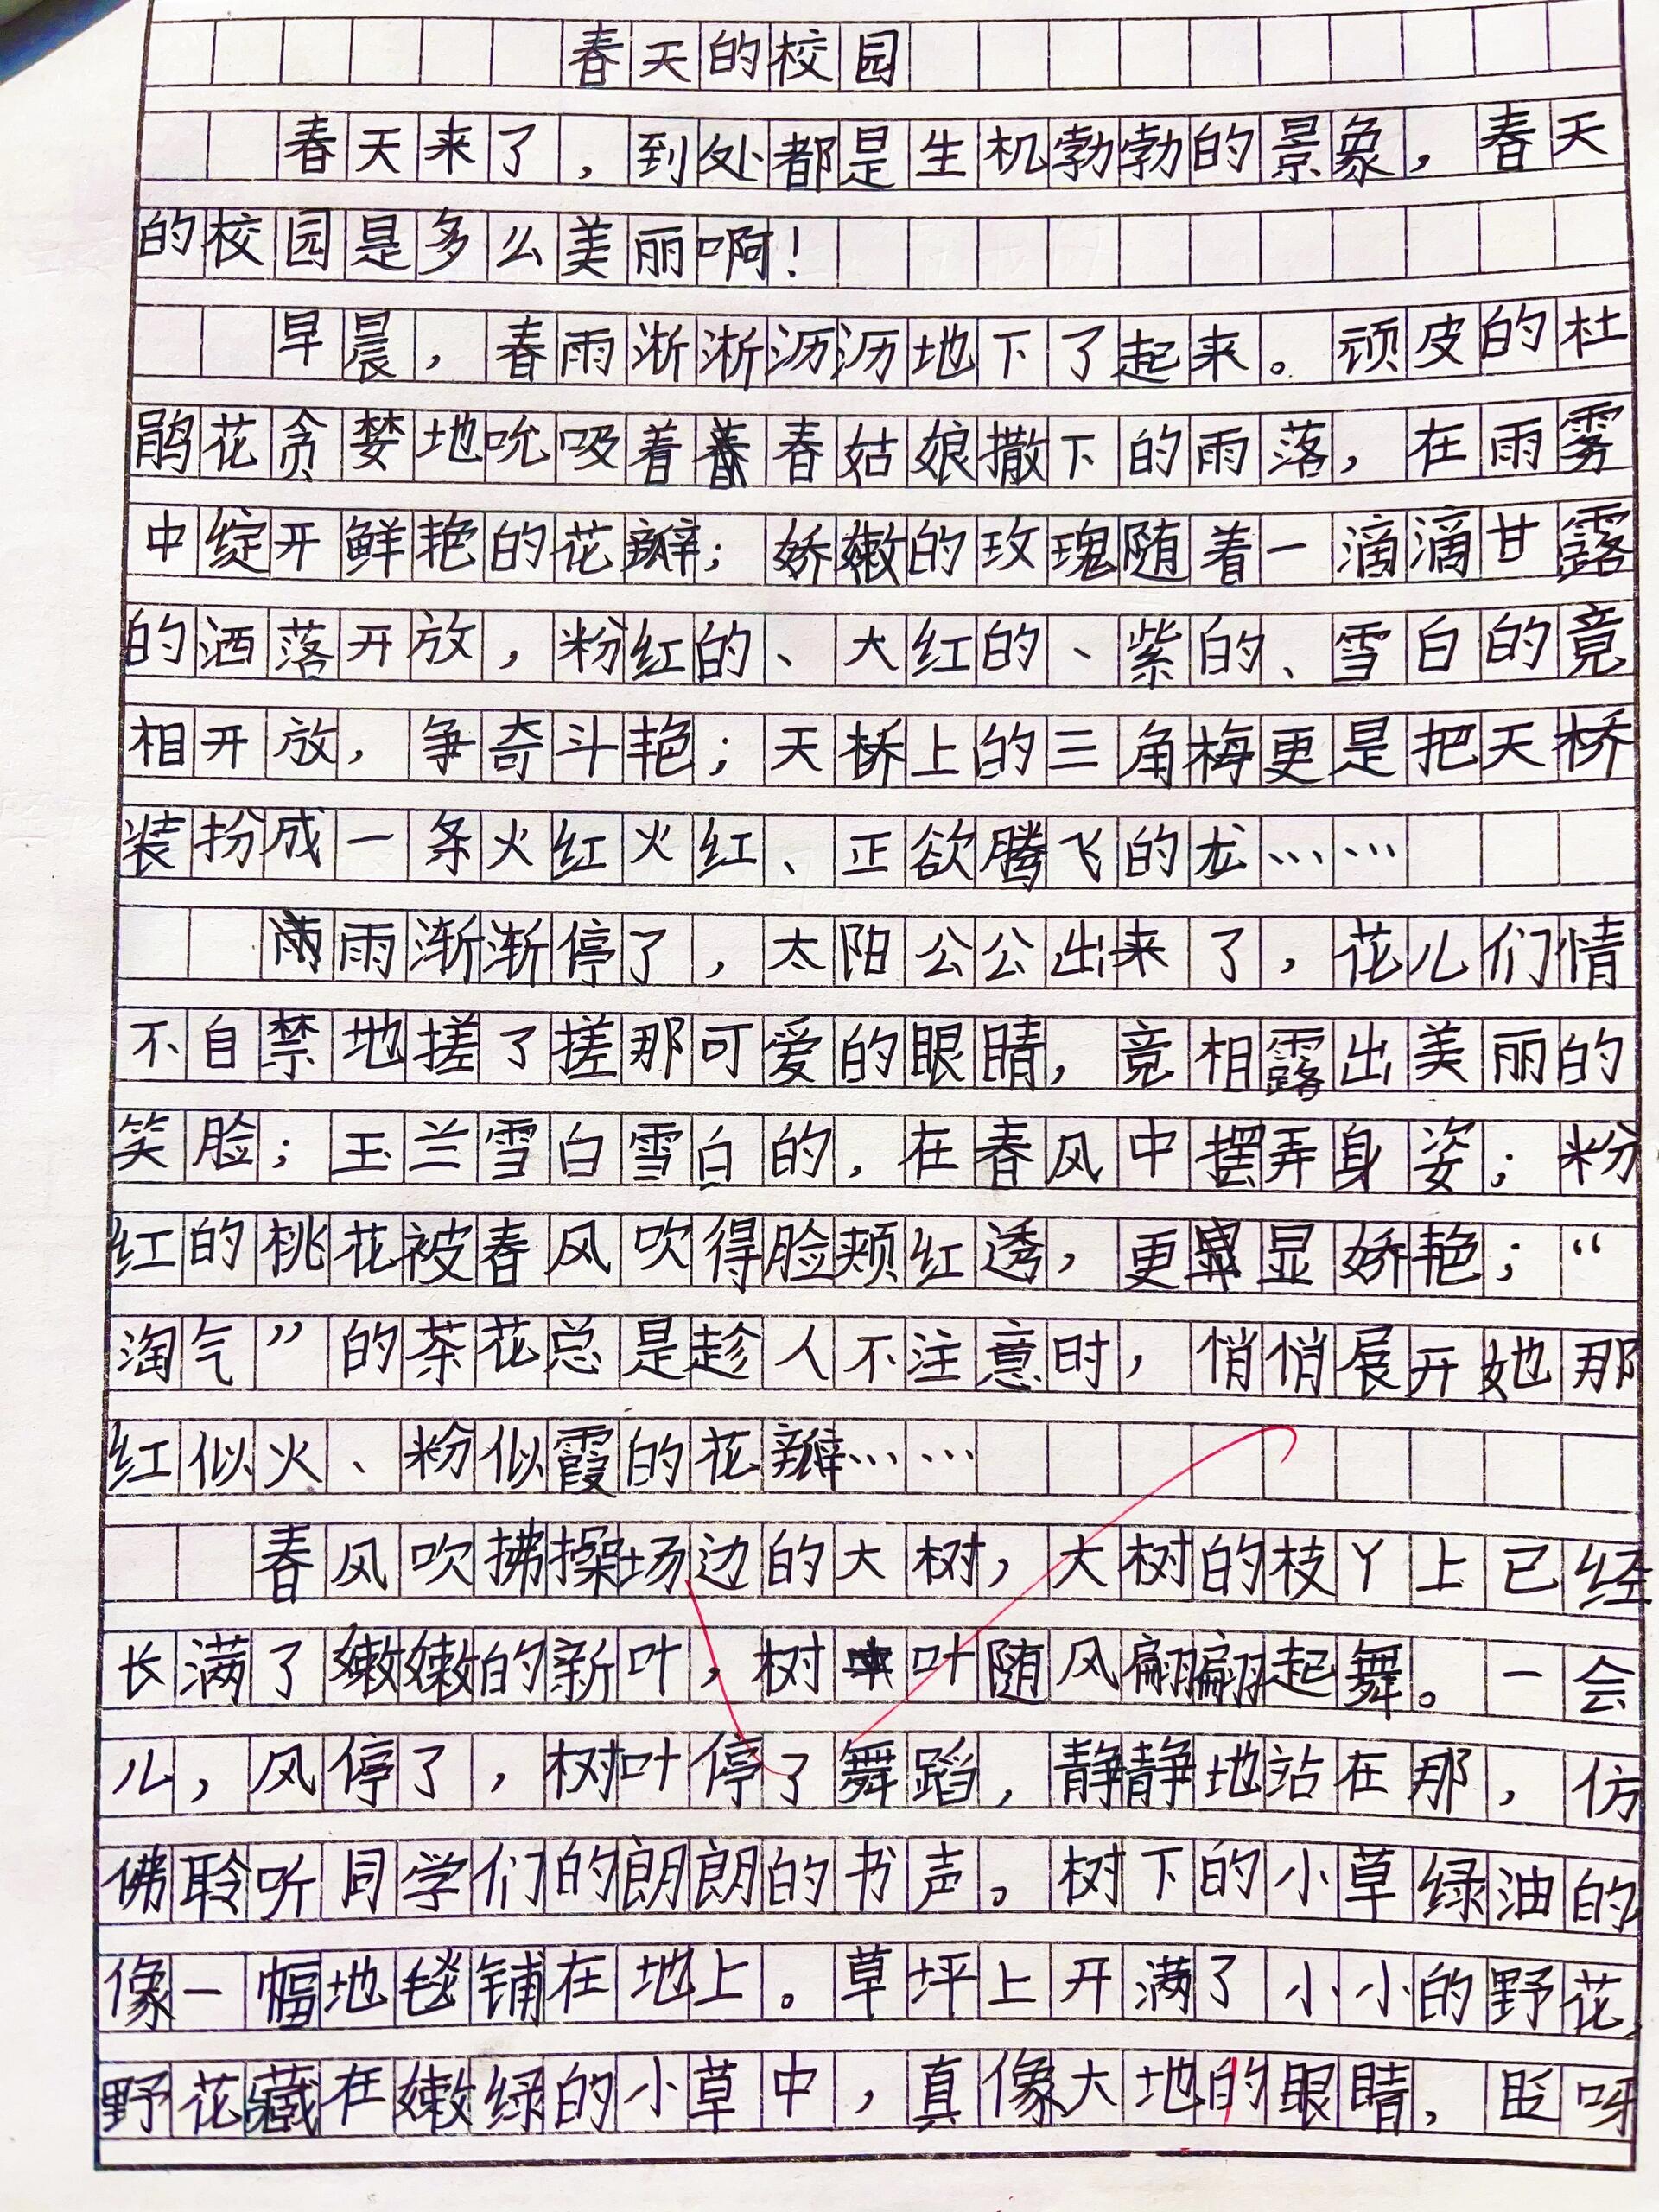 春天的校园
春天来了，到处都是生机勃勃的景象，春天
的校园是多么美丽啊！
早晨，春雨淅淅沥沥地下了起来。顽皮的杜
鹃花贪婪地吮吸着春姑娘撒下的雨落，在雨雾
中绽开鲜艳的花瓣；娇嫩的玫瑰随着一滴滴甘露
的洒落开放，粉红的、大红的、紫的、雪白的竟
相开放，争奇斗艳；天桥上的三角梅更是把天桥
装扮成一条火红火红、正欲腾飞的龙……
雨渐渐停了，太阳公公出来了，花儿们情
不自禁地搓了搓那可爱的眼睛，竟相露出美丽的
笑脸；玉兰雪白雪白的，在春风中摆弄身姿；粉
红的桃花被春风吹得脸颊红透，更显娇艳；“
淘气”的茶花总是趁人不注意时，悄悄展开她那
红似火、粉似霞的花瓣……
春风吹拂操场边的大树，大树的枝丫上已经
长满了嫩嫩的新叶，树叶随风翩翩起舞。一会
儿，风停了，树叶停了舞蹈，静静地站在那，仿
佛聆听同学们的朗朗的书声。树下的小草绿油的
像一幅地毯铺在地上。草坪上开满了小小的野花，
野花藏在嫩绿的小草中，真像大地的眼睛，眨呀